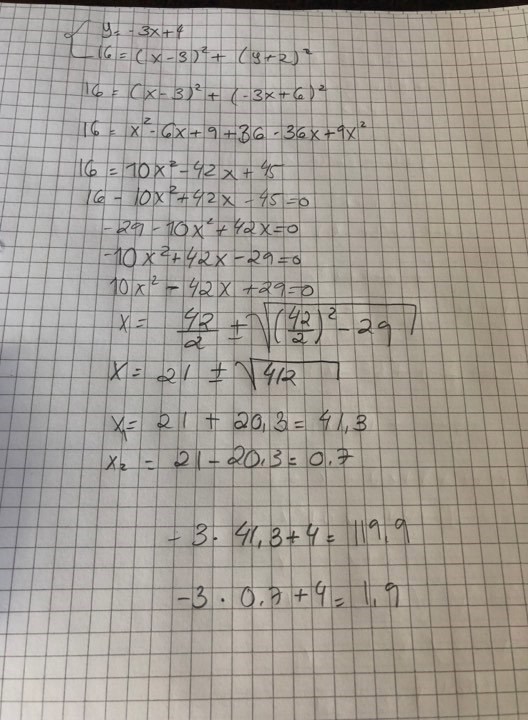 y = -3x+4
16 = (x-3)² + (y+2)²
16 = (x-3)² + (-3x+6)²
16 = x² - 6x + 9 + 36 - 36x + 9x²
16 = 10x² - 42x + 45
16 - 10x² + 42x - 45 = 0
-29 - 10x² + 42x = 0
-10x² + 42x - 29 = 0
10x² - 42x + 29 = 0
x = 42/2 ± √((42/2)² - 29)
x = 21 ± √412
x₁ = 21 + 20,3 = 41,3
x₂ = 21 - 20.3 = 0.7
-3 · 41,3 + 4 = 119,9
-3 · 0.7 + 4 = 1,9